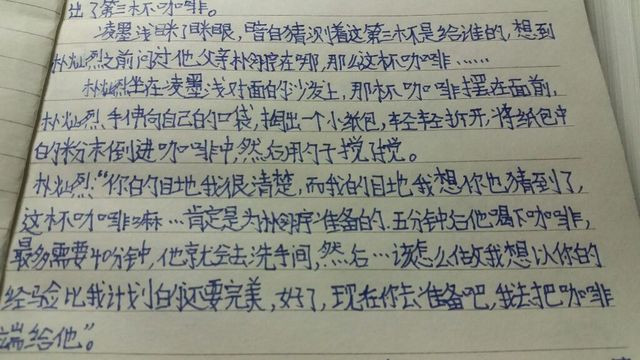 出了第三杯咖啡。
凌墨浅眯了眯眼,暗自猜测着这第三杯是给谁的,想到
朴灿烈之前问过他父亲朴树房在哪,那么这杯咖啡……
朴灿烈坐在凌墨浅对面的沙发上,那杯咖啡摆在面前,
朴灿烈手伸向自己的口袋,掏出一个小纸包,轻轻打开,将纸包中
的粉末倒进咖啡中,然后用勺子搅拌。
朴灿烈:“你的目地我很清楚,而我的目地我想你也猜到了,
这杯咖啡嘛…肯定是为朴树房准备的.五分钟后他喝下咖啡,
最多需要40分钟,他就会去洗手间,然后…该怎么做我想以你的
经验比我计划的还要完美,好了,现在你去准备吧,我去把咖啡
端给他”。